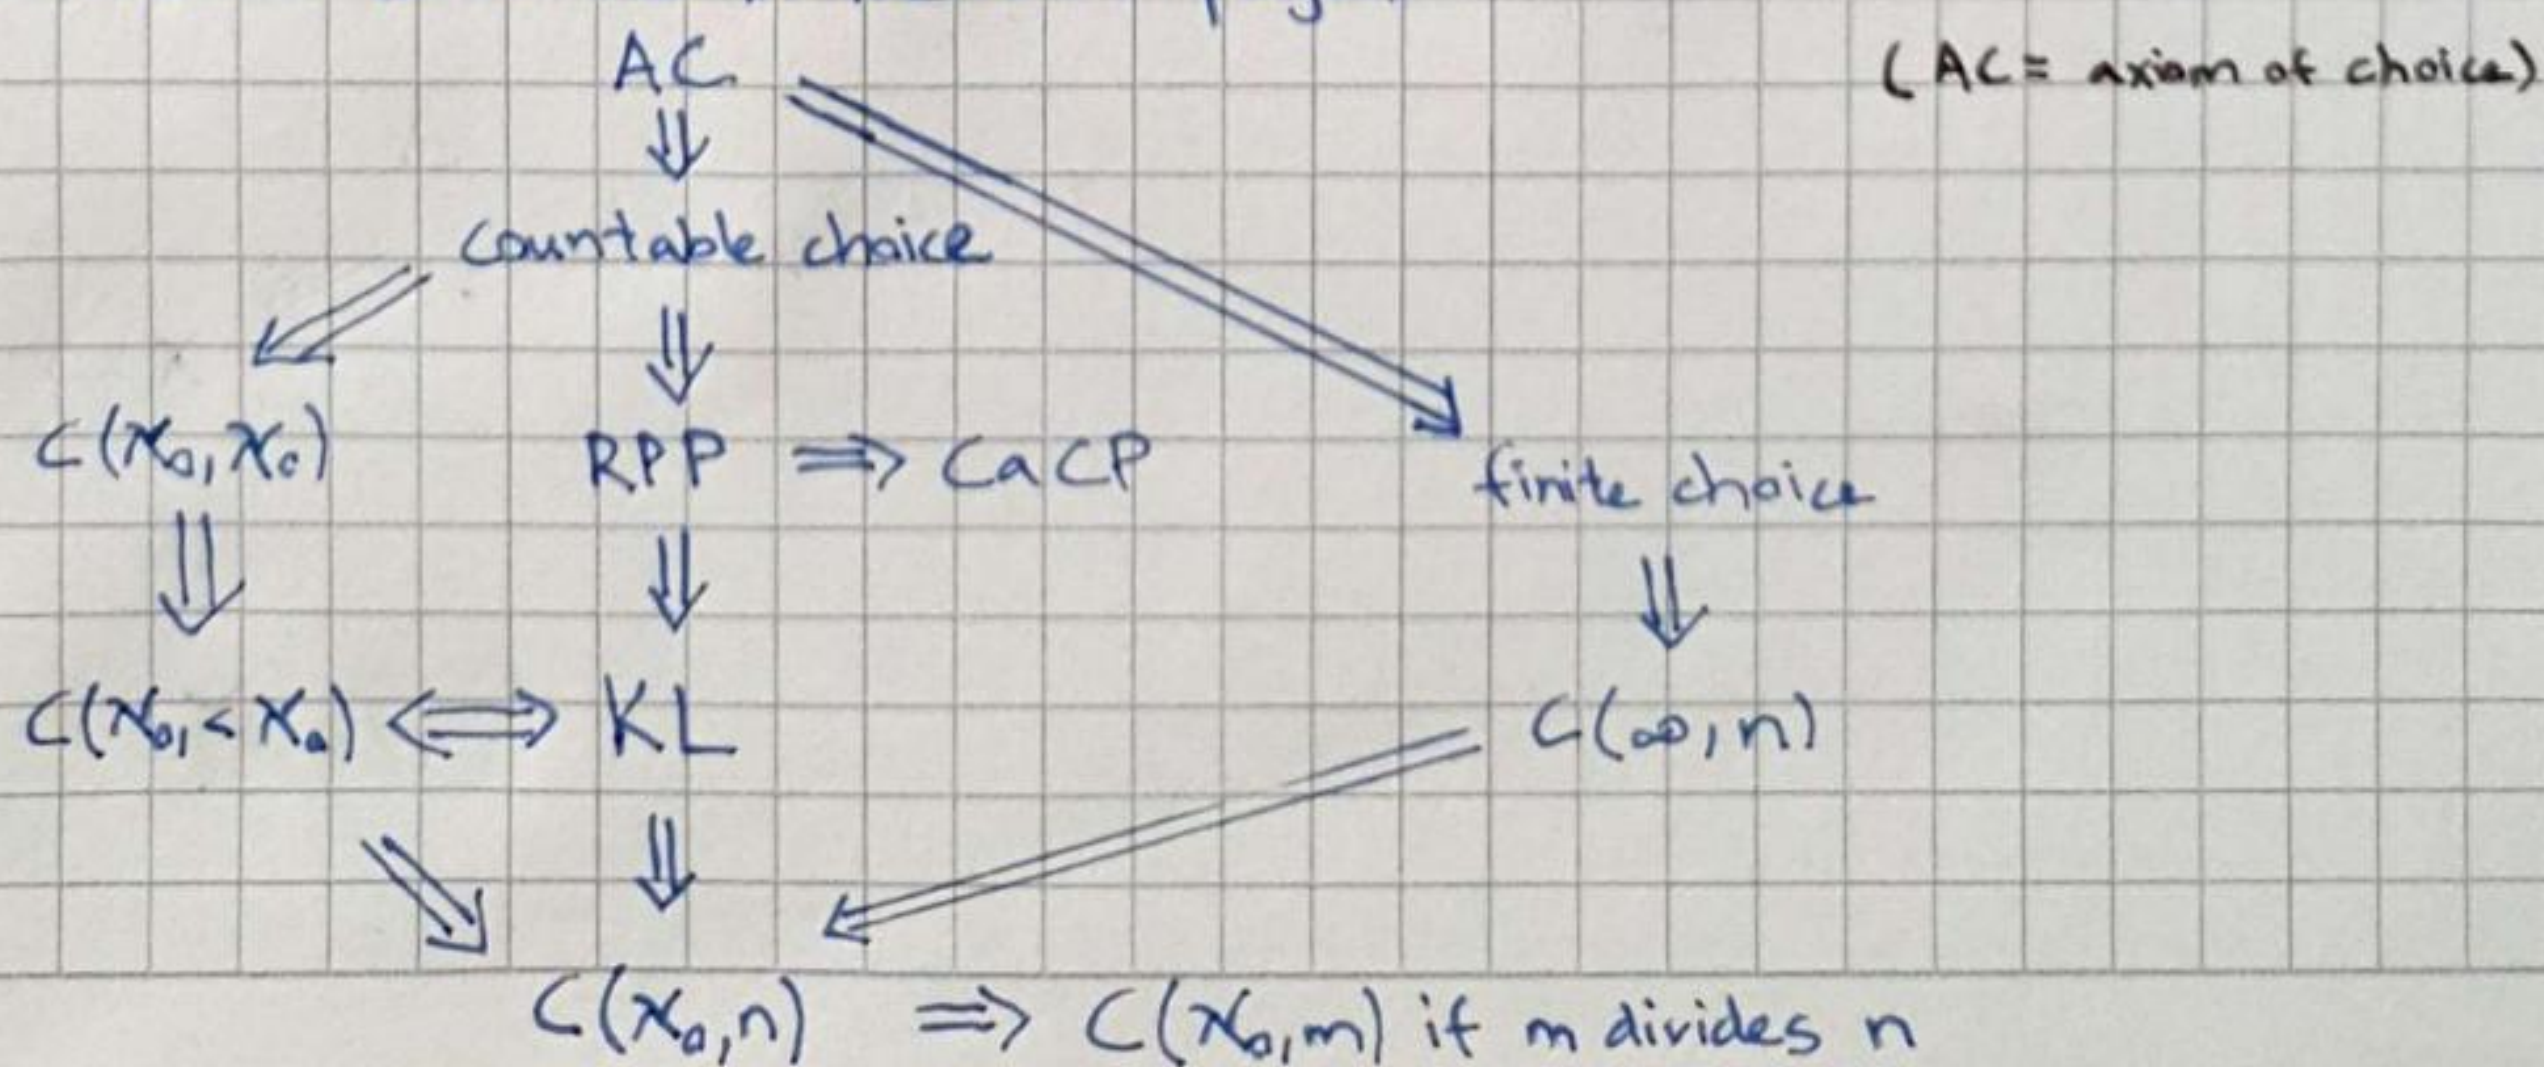 AC (AC = axiom of choice)
⇓
countable choice
⇙ ⇓ ⇘
C(ℵ₀, ℵ₀) RPP ⇒ CaCP finite choice
⇓ ⇓ ⇓
C(ℵ₀, < ℵ₀) ⇔ KL C(∞, n)
⇘ ⇓ ⇙
C(ℵ₀, n) ⇒ C(ℵ₀, m) if m divides n